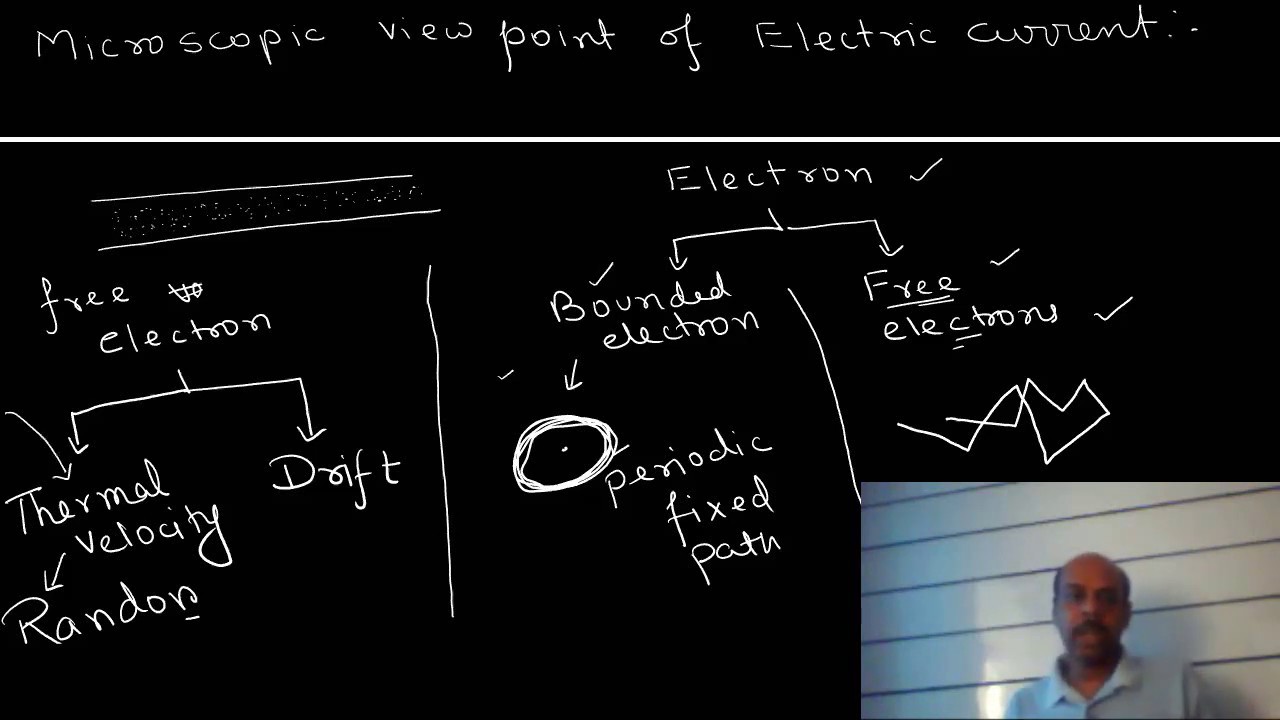 Microscopic view point of Electric current:-
Electron
free
electron
Bounded
electron
Free
electrons
Thermal
velocity
Drift
Random
periodic
fixed
path